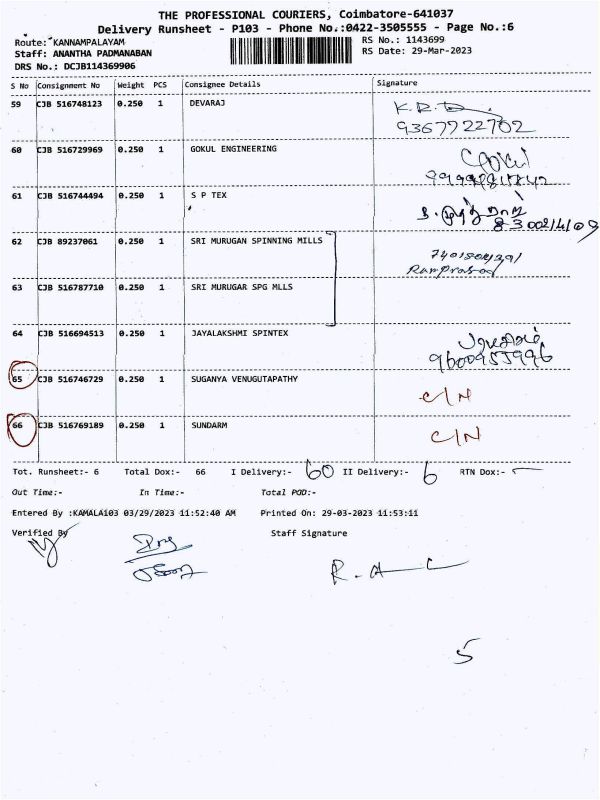 THE PROFESSIONAL COURIERS, Coimbatore-641037
Delivery Runsheet - P103 - Phone No.:0422-3505555 - Page No.:6
Route: KANNAMPALAYAM RS No.: 1143699
Staff: ANANTHA PADMANABAN RS Date: 29-Mar-2023
DRS No.: DCJB114369906
S No Consignment No Weight PCS Consignee Details Signature
59 CJB 516748123 0.250 1 DEVARAJ
9367722702
60 CJB 516729969 0.250 1 GOKUL ENGINEERING
61 CJB 516744494 0.250 1 S P TEX
62 CJB 89237061 0.250 1 SRI MURUGAN SPINNING MILLS
Ramprasad
63 CJB 516787710 0.250 1 SRI MURUGAR SPG MLLS
64 CJB 516694513 0.250 1 JAYALAKSHMI SPINTEX
9600955996
65 CJB 516746729 0.250 1 SUGANYA VENUGUTAPATHY C/N
66 CJB 516769189 0.250 1 SUNDARM C/N
Tot. Runsheet:- 6 Total Dox:- 66 I Delivery:- 60 II Delivery:- 6 RTN Dox:-
Out Time:- In Time:- Total POD:-
Entered By :KAMALA103 03/29/2023 11:52:40 AM Printed On: 29-03-2023 11:53:11
Verified By Staff Signature
5